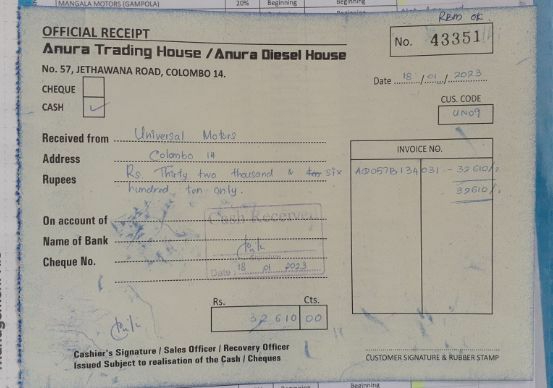 MANGALA MOTORS (GAMPOLA) 20% Beginning Beginning
OFFICIAL RECEIPT
Anura Trading House / Anura Diesel House
No. 57, JETHAWANA ROAD, COLOMBO 14.
No. 43351
Date 18/01/2023
CHEQUE
CASH ✓
CUS. CODE
UN09
Received from Universal Motors
Address Colombo 14
Rupees Rs. Thirty two thousand & six
hundred ten only.
INVOICE NO.
AD057B134031 - 32610/=
32610/=
On account of
Name of Bank
Cheque No.
Cash Received
Date 18 01 2023
Rs. Cts.
32610 00
Cashier's Signature / Sales Officer / Recovery Officer
Issued Subject to realisation of the Cash / Cheques
CUSTOMER SIGNATURE & RUBBER STAMP
Beginning